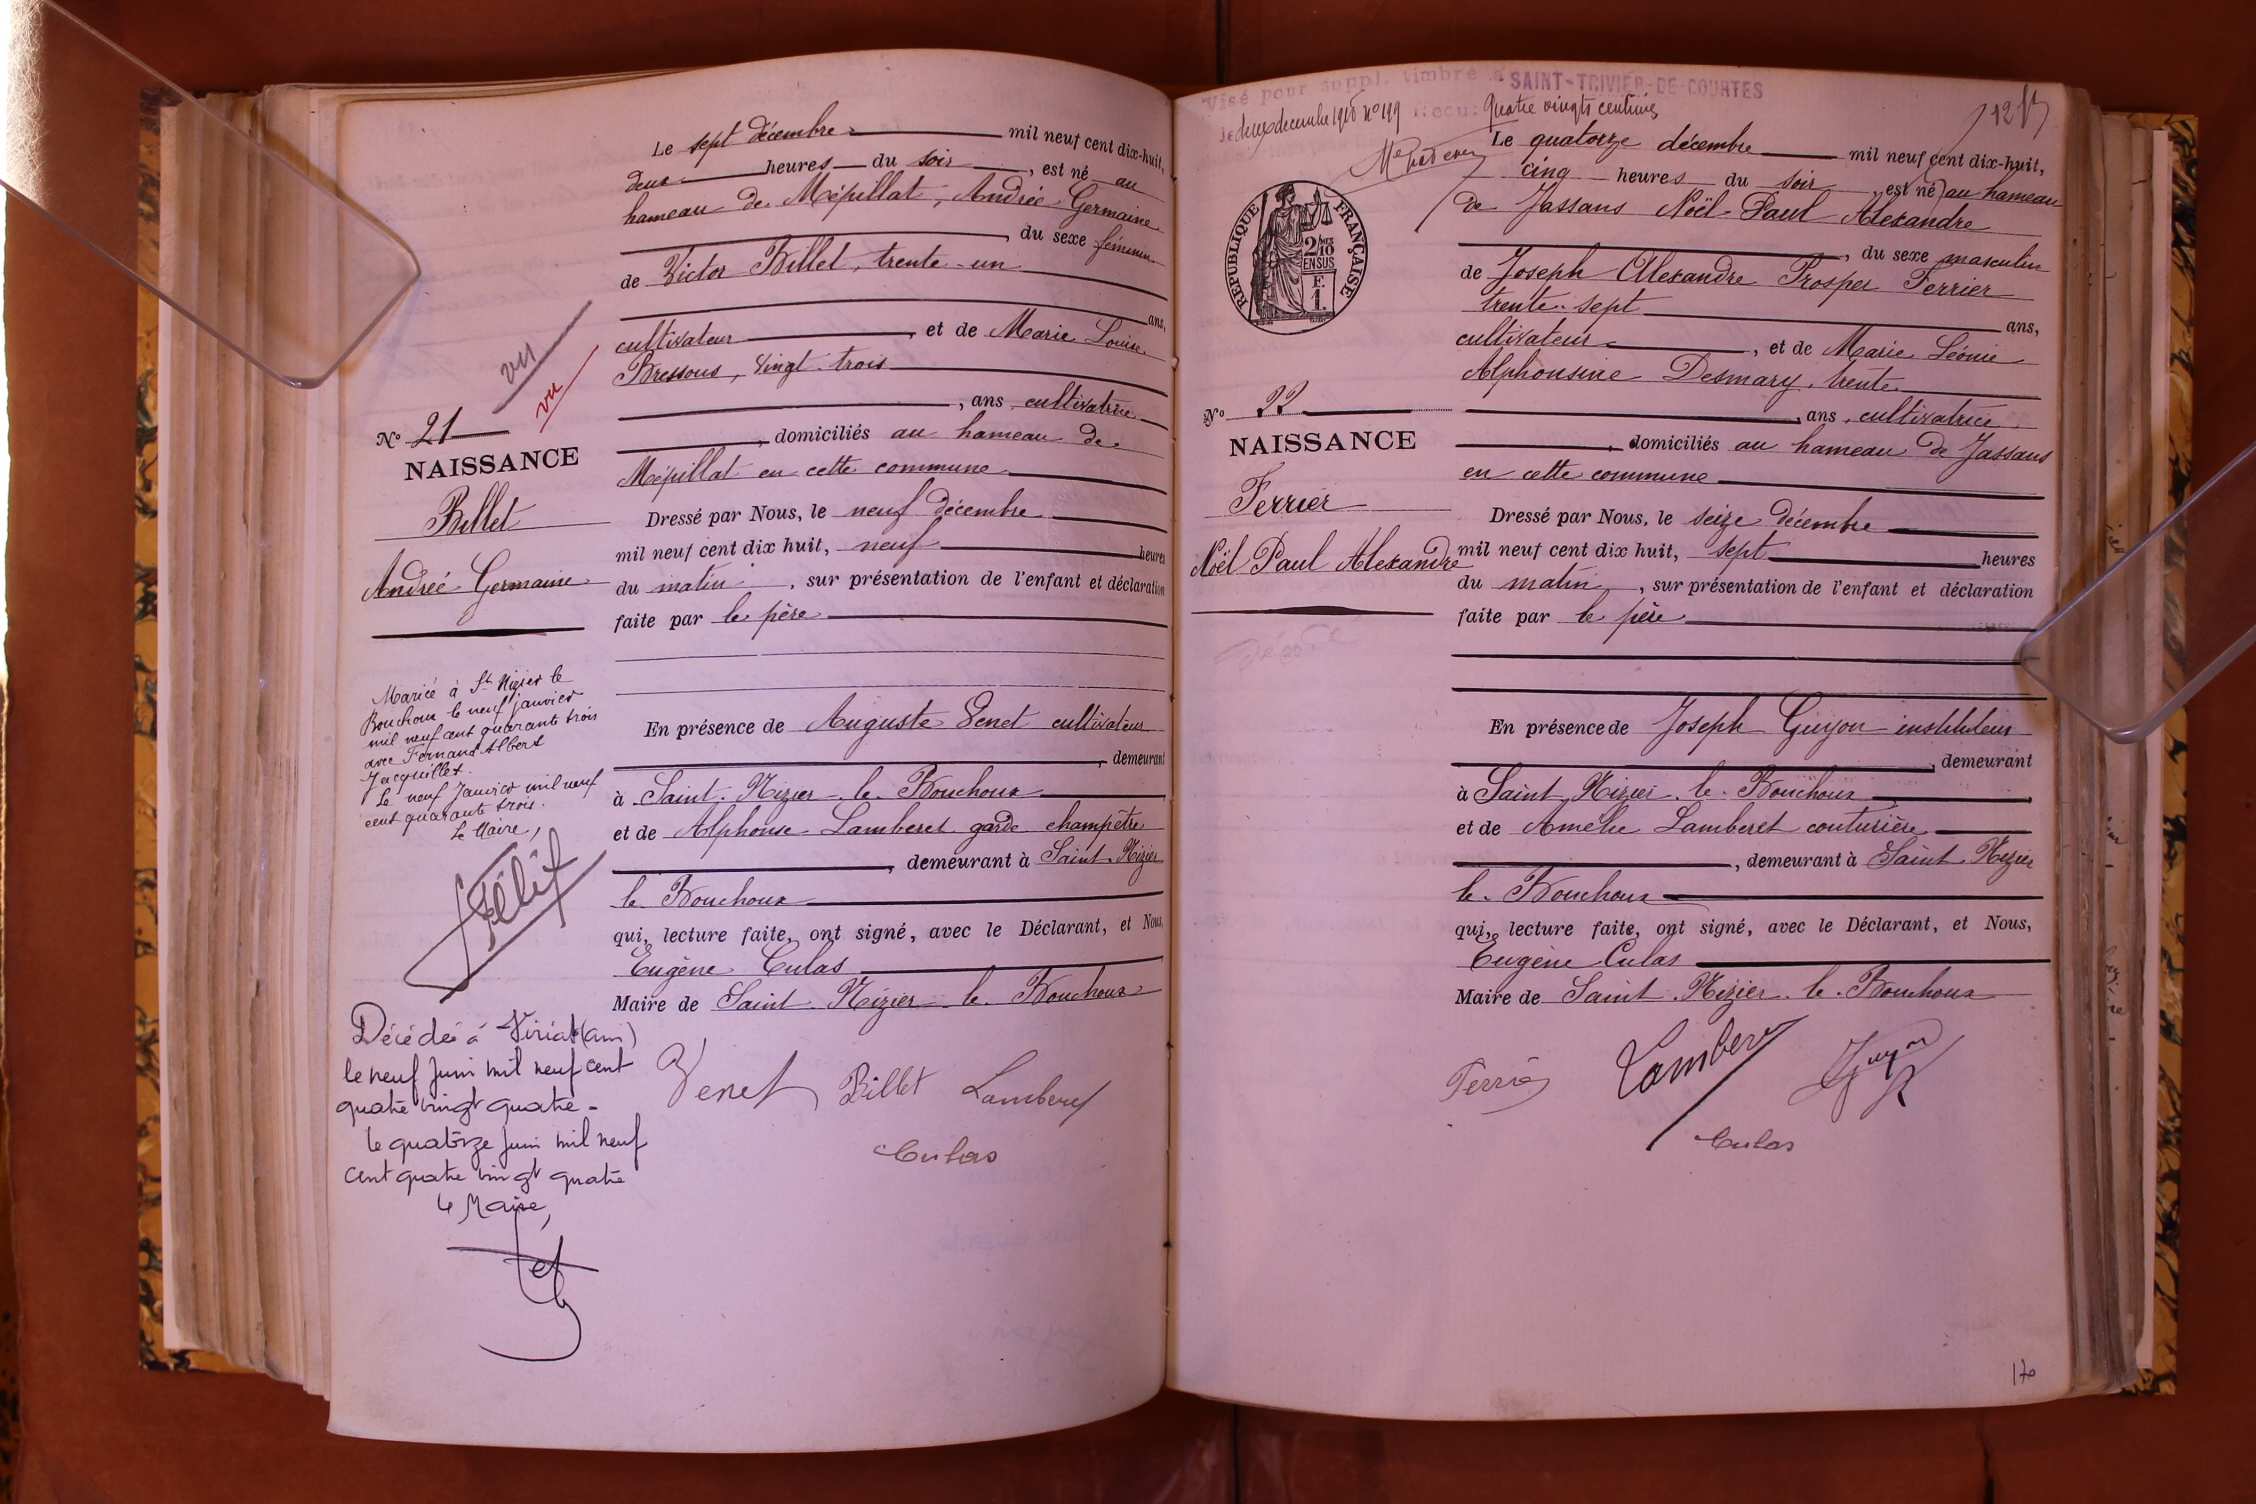 Le sept décembre mil neuf cent dix-huit,
deux heures du soir, est né au
hameau de Mépillat, Andrée Germaine
, du sexe féminin
de Victor Billet, trente-un
ans,
cultivateur, et de Marie Louise
Bressous, vingt-trois
, ans, cultivatrice
, domiciliés au hameau de
Mépillat en cette commune
Dressé par Nous, le neuf décembre
mil neuf cent dix huit, neuf heures
du matin, sur présentation de l'enfant et déclaration
faite par le père
En présence de Auguste Venet cultivateur
, demeurant
à Saint-Nizier-le-Bouchoux
et de Alphonse Lamberet garde champêtre
, demeurant à Saint-Nizier
le-Bouchoux
qui, lecture faite, ont signé, avec le Déclarant, et Nous,
Eugène Culas
Maire de Saint-Nizier-le-Bouchoux
Venet Billet Lamberet
Culas
vu
vu
N° 21
NAISSANCE
Billet
Andrée Germaine
Mariée à St Nizier le
Bouchoux le neuf janvier
mil neuf cent quarante trois
avec Fernand Albert
Jacquillet.
Le neuf Janvier mil neuf
cent quarante trois.
Le Maire,
Décédée à Viriat (ain)
le neuf juin mil neuf cent
quatre vingt quatre -
le quatorze juin mil neuf
cent quatre vingt quatre
le Maire,
Visé pour suppl. timbre à SAINT-TRIVIER-DE-COURTES
le deux decembre 1918 n° 199 Reçu: Quatre vingts centimes
Le quatorze décembre mil neuf cent dix-huit,
cinq heures du soir, est né au hameau
de Jassans Noël Paul Alexandre
, du sexe masculin
de Joseph Allexandre Prosper Ferrier
trente-sept ans,
cultivateur, et de Marie Léonie
Alphonsine Desmary, trente
, ans, cultivatrice
, domiciliés au hameau de Jassans
en cette commune
Dressé par Nous, le seize décembre
mil neuf cent dix huit, sept heures
du matin, sur présentation de l'enfant et déclaration
faite par le père
En présence de Joseph Guyon instituteur
, demeurant
à Saint-Nizier-le-Bouchoux
et de Amélie Lamberet couturière
, demeurant à Saint-Nizier
le-Bouchoux
qui, lecture faite, ont signé, avec le Déclarant, et Nous,
Eugène Culas
Maire de Saint-Nizier-le-Bouchoux
Ferrier Lamberet Guyon
Culas
RÉPUBLIQUE FRANÇAISE
2/10 EN SUS
F. 1.
N° 22
NAISSANCE
Ferrier
Noël Paul Alexandre
170